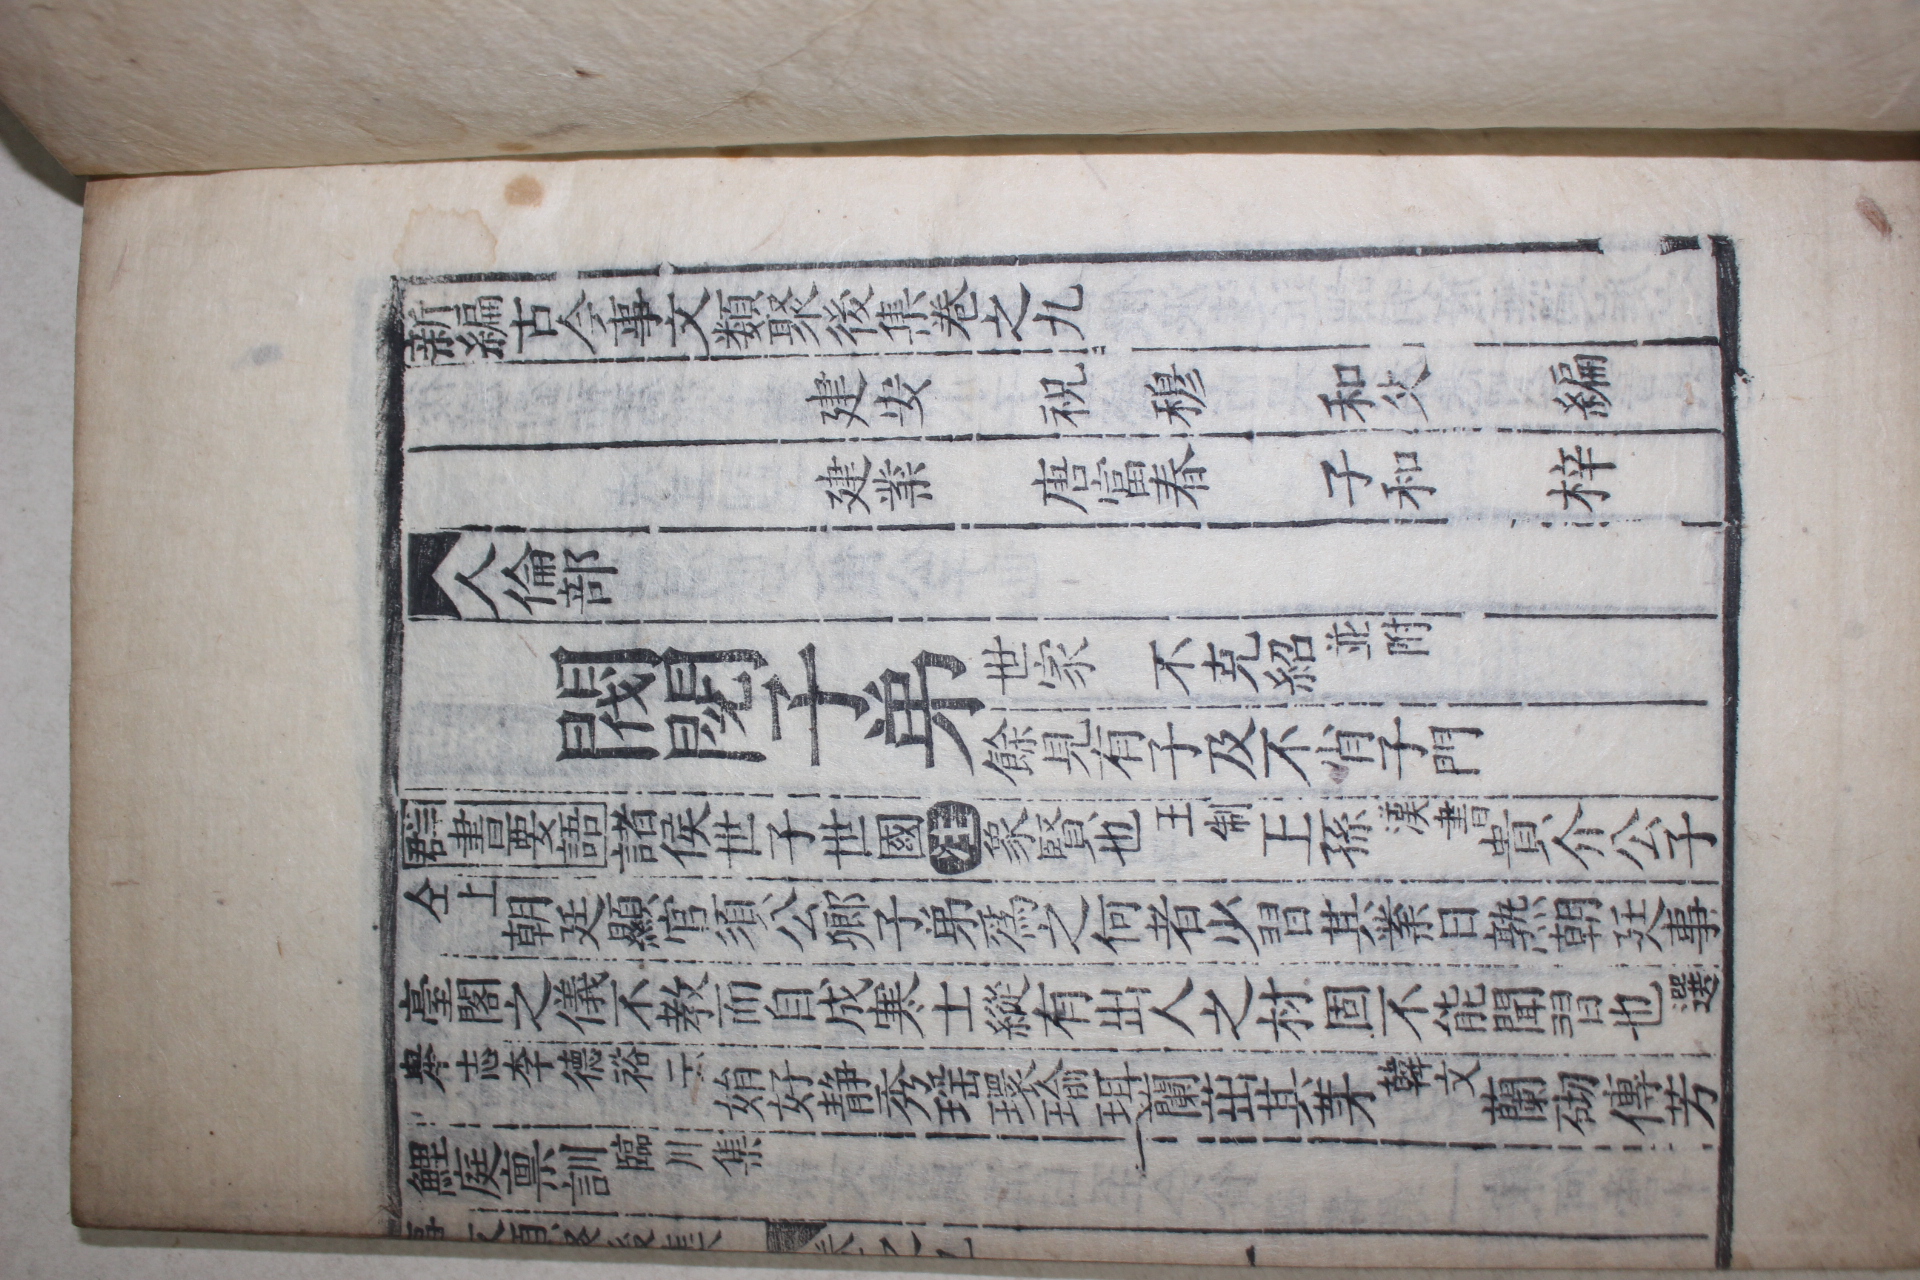 新編古今事文類聚後集卷之九
建安 祝 穆 和父 編
建業 唐富春 子和 梓
人倫部
閥閱子弟 世家 不克紹 並附
餘見有子及不肖子門
群書要語 諸侯世子世國 注 象賢也 王制 王孫 漢書 貴介公子
仝上 朝廷顯官須公卿子弟爲之何者少習其業日熟朝廷事
臺閣之儀不教而自成寒士縱有出人之材固不能聞習也 選
舉志李德裕云 娟好靜秀瑶環瑜珥蘭茁其茅 韓文 蘭砌傳芳
鯉庭禀訓 臨川集
事文類聚後集 卷之九 一